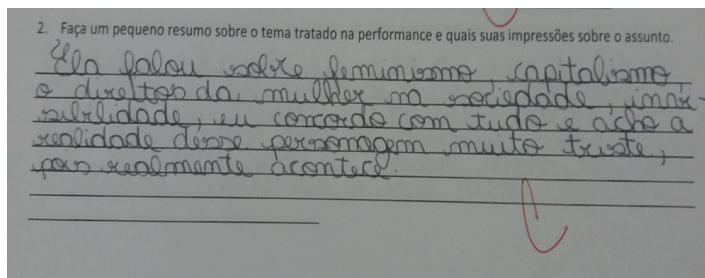 2. Faça um pequeno resumo sobre o tema tratado na performance e quais suas impressões sobre o assunto.
Ela falou sobre feminismo, capitalismo,
o direitos da mulher na sociedade, invi-
sibilidade, eu concordo com tudo e acho a
realidade desse personagem muito triste,
pois realmente acontece.